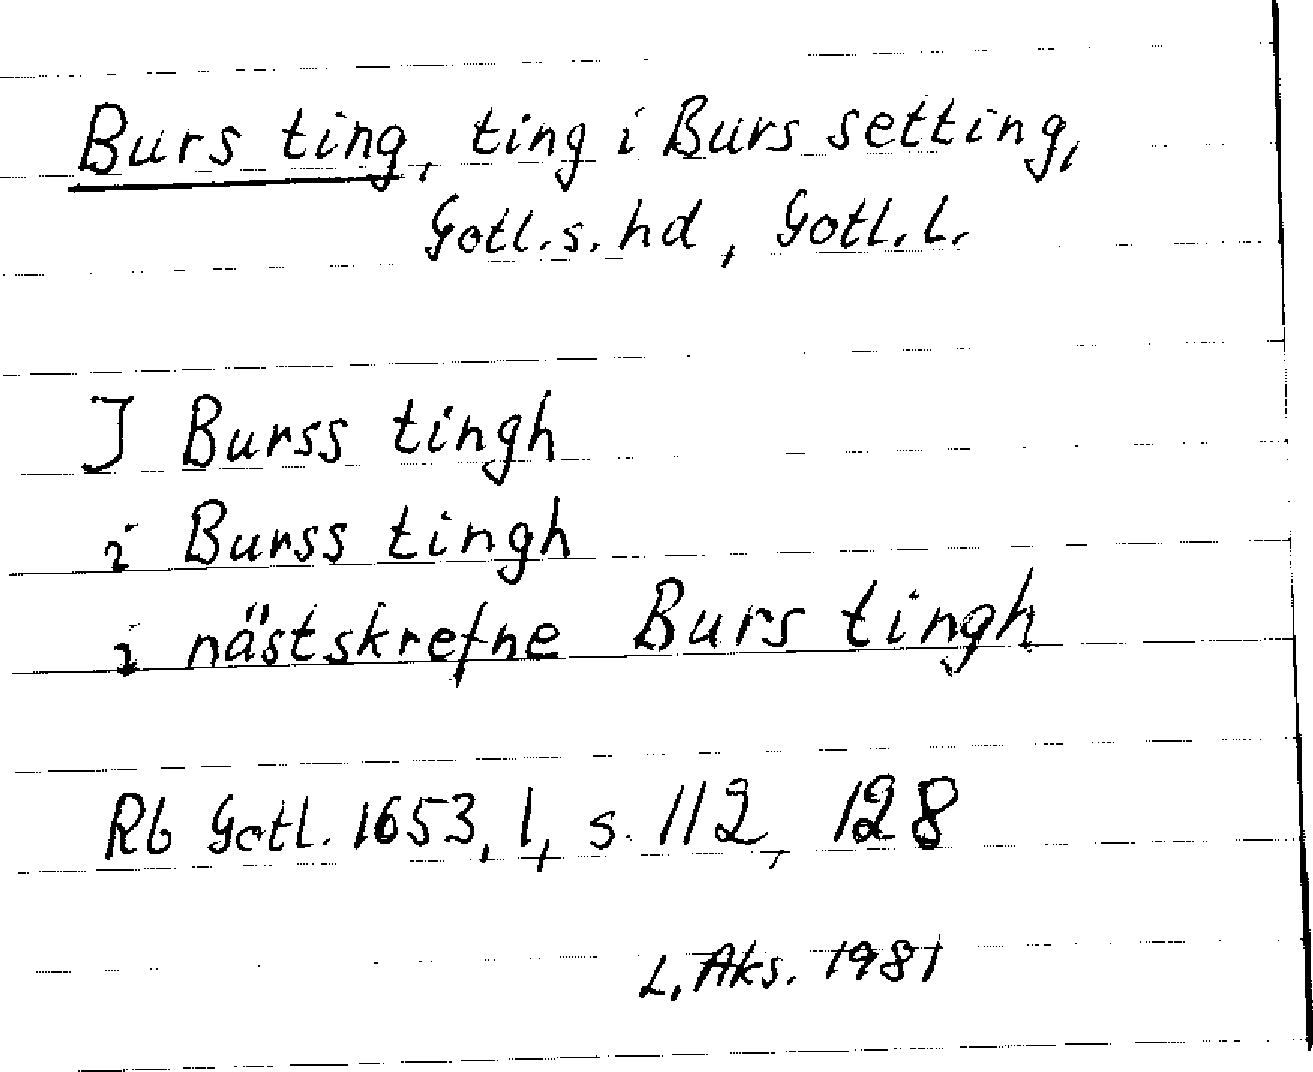 Burs ting, ting i Burs setting,
Gotl.s.hd, Gotl.L.
I Burss tingh
i Burss tingh
i nästskrefne Burs tingh
Rb Gotl. 1653, 1, s. 112, 128
L. Aks. 1981